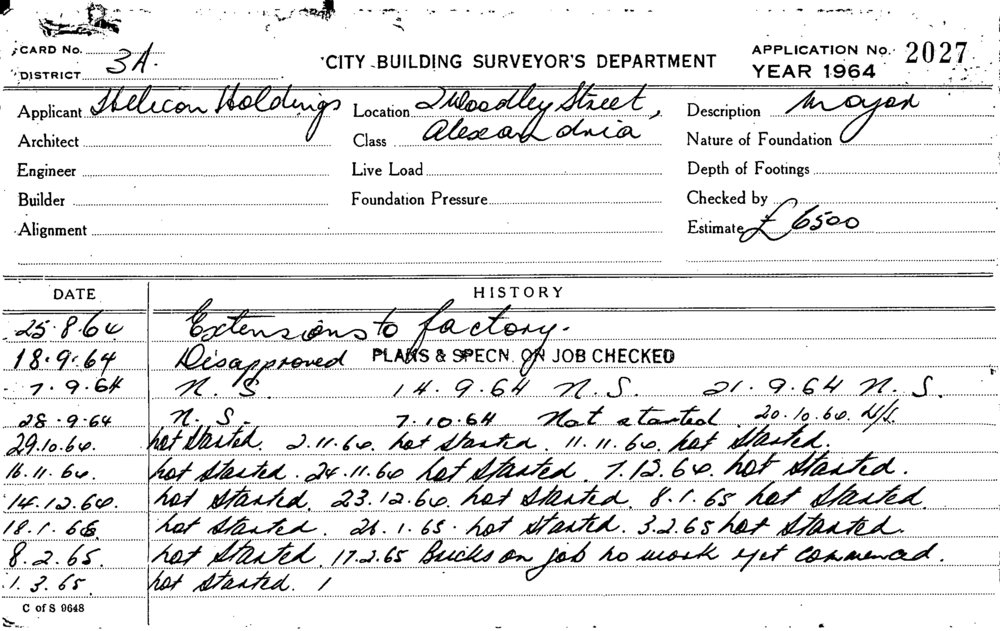 CARD No. 3A.
DISTRICT
CITY BUILDING SURVEYOR'S DEPARTMENT
APPLICATION No. 2027
YEAR 1964
Applicant Helicon Holdings Location 2 Woodley Street, Description Mayor
Architect Class Alexandria Nature of Foundation
Engineer Live Load Depth of Footings
Builder Foundation Pressure Checked by
Alignment Estimate £6500
DATE HISTORY
25.8.64 Extensions to factory.
18.9.64 Disapproved PLANS & SPECN. ON JOB CHECKED
7.9.64 N.S. 14.9.64 N.S. 21.9.64 N.S.
28.9.64 N.S. 7.10.64 Not started 20.10.64. N/S.
29.10.64. not started. 2.11.64. not started. 11.11.64. not started.
16.11.64. not started. 24.11.64 not started. 7.12.64. not started.
14.12.64. not started. 23.12.64. not started. 8.1.65 not started.
18.1.65. not started. 26.1.65. not started. 3.2.65 not started.
8.2.65. not started. 17.2.65 Bricks on job no work yet commenced.
1.3.65. not started.
C of S 9648